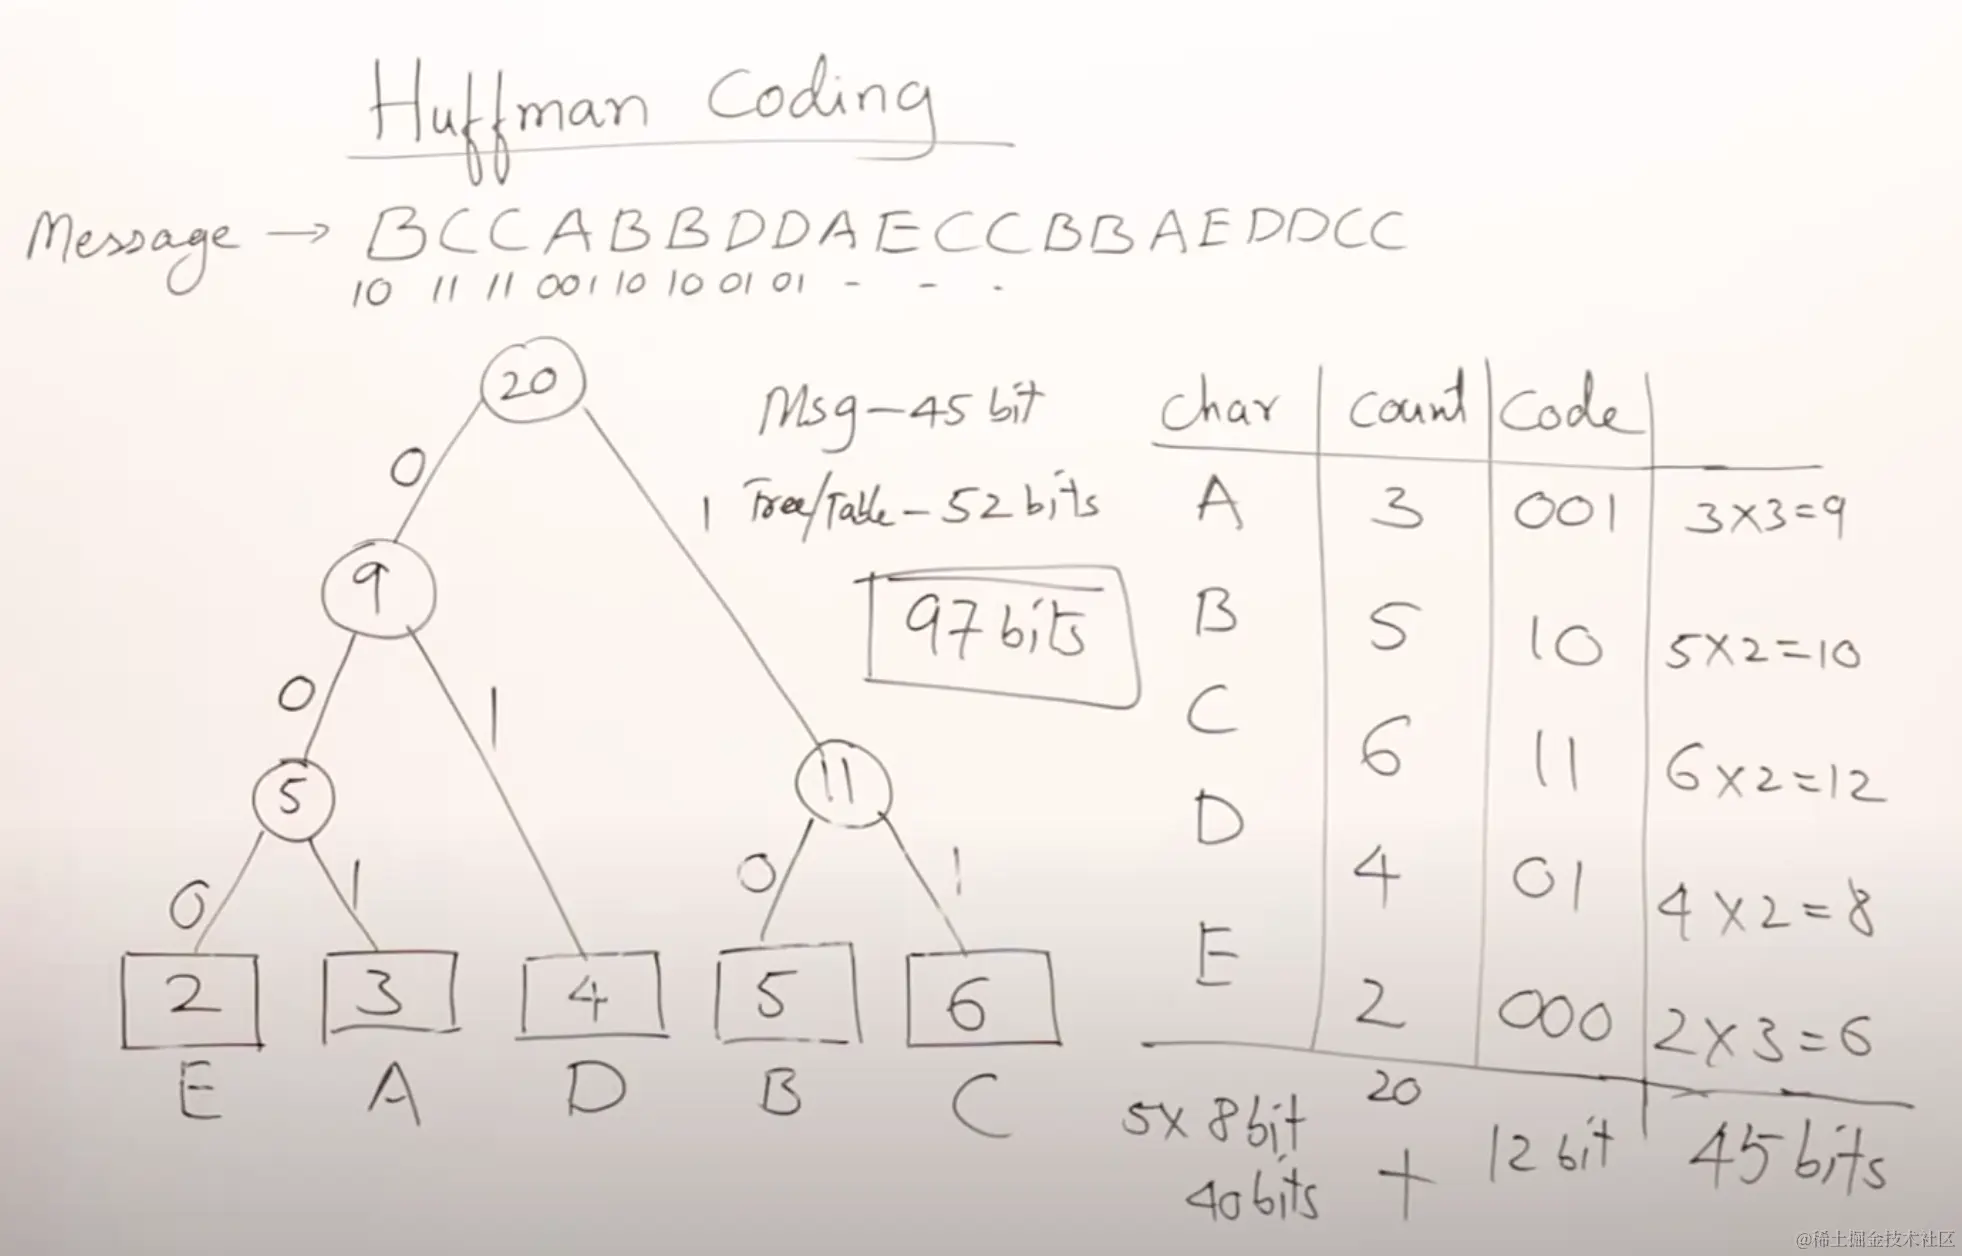 Huffman Coding
Message → BCCABBDDAECCBBAEDDCC
10 11 11 001 10 10 01 01 - - .
20
Msg - 45 bit
Tree/Table - 52 bits
97 bits
0 1
9
0 1
5 11
0 1 0 1
2 3 4 5 6
E A D B C
Char Count Code
A 3 001 3×3=9
B 5 10 5×2=10
C 6 11 6×2=12
D 4 01 4×2=8
E 2 000 2×3=6
5×8bit 20 12 bit 45 bits
40 bits +
@稀土掘金技术社区